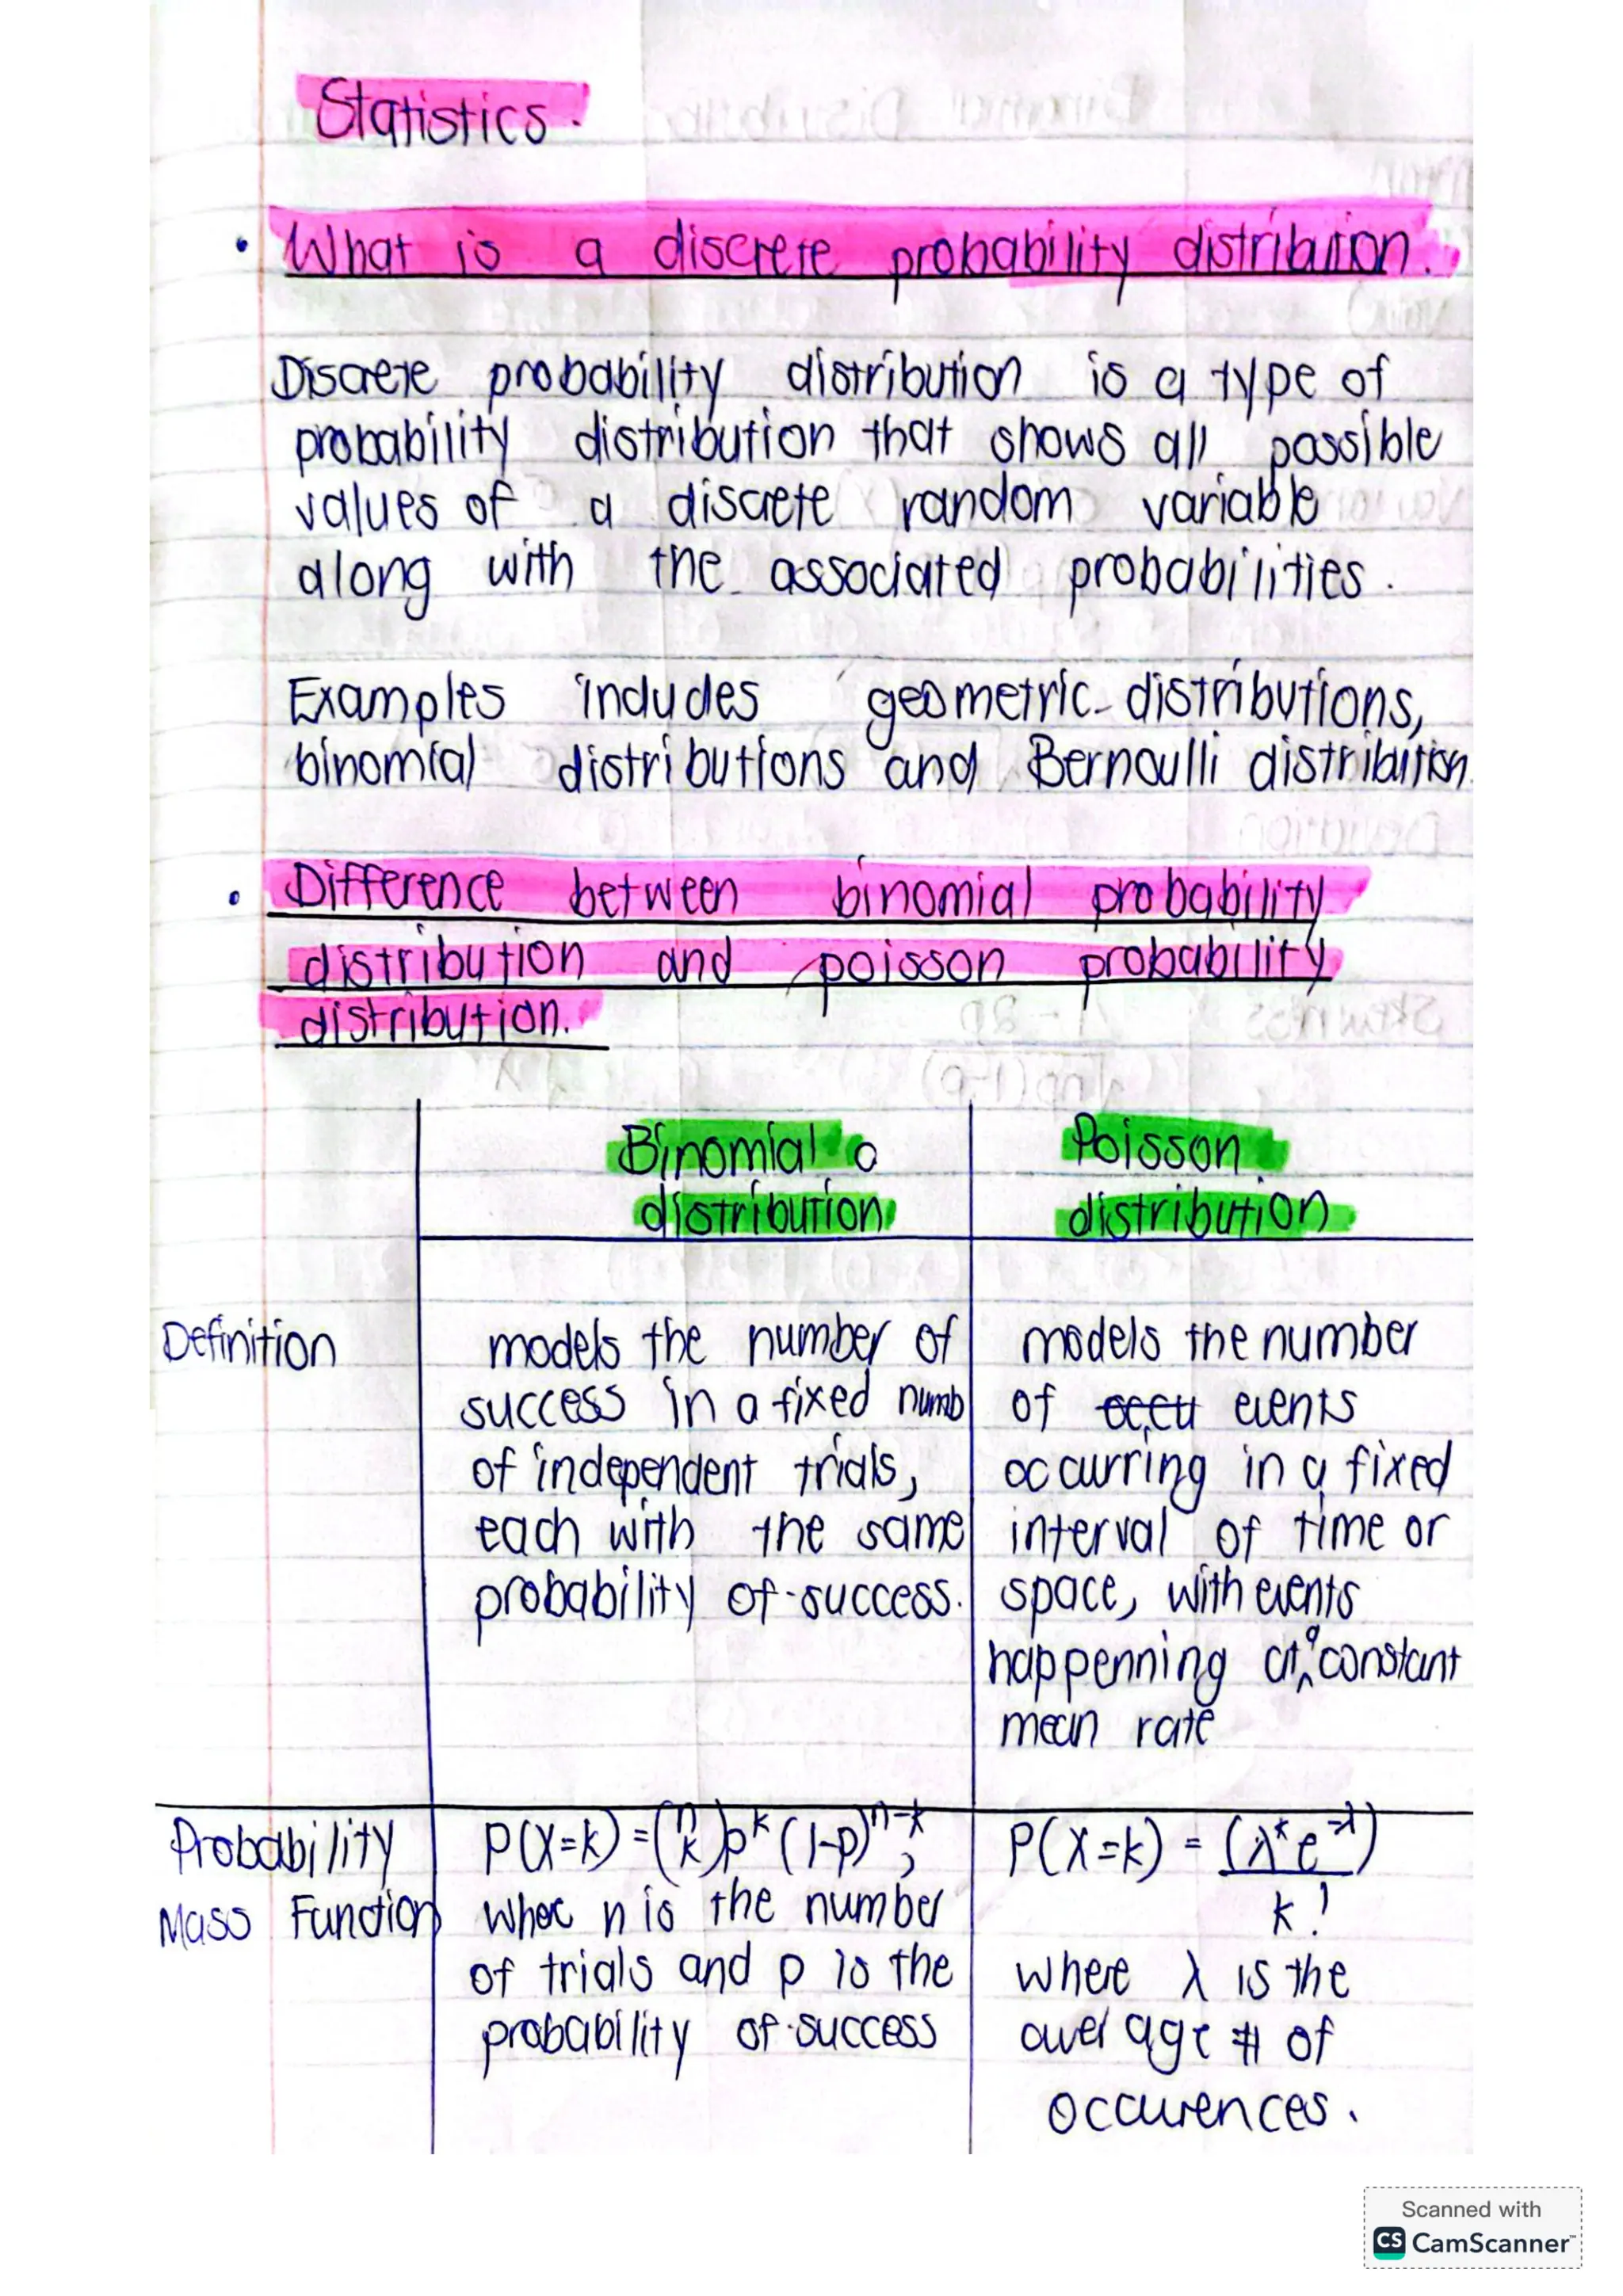 Statistics.
• What is a discrete probability distribution.
Discrete probability distribution is a type of
probability distribution that shows all possible
values of a discrete random variable
along with the associated probabilities.
Examples includes geometric distributions,
binomial distributions and Bernoulli distribution.
• Difference between binomial probability
distribution and poisson probability
distribution.
Binomial
distribution
Poisson
distribution
Definition
models the number of
success in a fixed numb
of independent trials,
each with the same
probability of success.
models the number
of occu events
occurring in a fixed
interval of time or
space, with events
happenning at a constant
mean rate
Probability
Mass Function
P(X=k) = (n k) p^k (1-p)^n-k,
where n is the number
of trials and p is the
probability of success
P(X=k) = (λ^k e^-λ)
k!
where λ is the
average # of
occurences.
Scanned with
CS CamScanner™